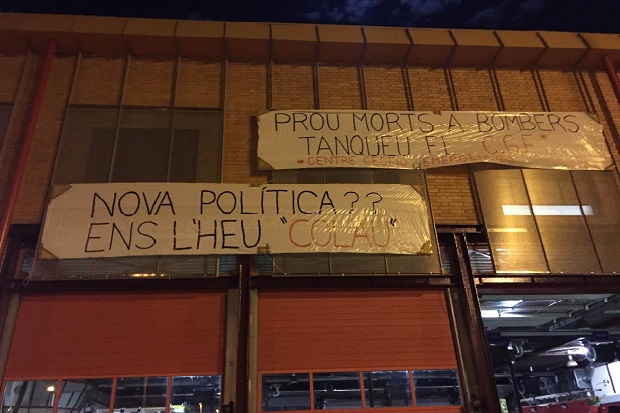 PROU MORTS A BOMBERS
TANQUEU EL "C.G.E"
*CENTRE GESTIÓ
NOVA POLÍTICA??
ENS L'HEU "COLAU"